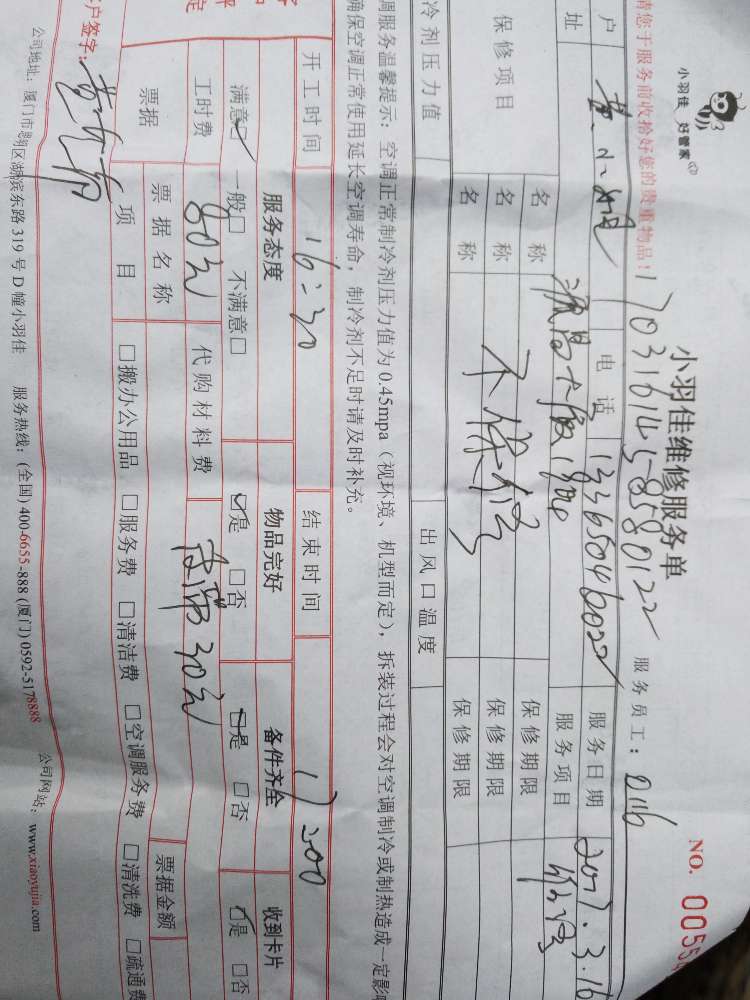 小羽佳 好管家
小羽佳维修服务单
NO. 0055
请您于服务前收拾好您的贵重物品!
1703161458580122
服务员工: 0116
户 黄小姐 电话 13365046022 服务日期 2017.3.16
址 服务项目
保修项目 名称 液晶 保修期限
名称 不保修 保修期限
名称 保修期限
冷剂压力值 出风口温度
调服务温馨提示: 空调正常制冷剂压力值为0.45mpa (视环境、机型而定), 拆装过程会对空调制冷或制热造成一定影响
确保空调正常使用延长空调寿命, 制冷剂不足时请及时补充。
开工时间 16:30 结束时间 17:00
服务态度 物品完好 备件齐全 收到卡片
满意☑ 一般☐ 不满意☐ ☑是 ☐否 ☑是 ☐否 ☑是 ☐否
工时费 80元 代购材料费 30元
票据 票据名称 票据金额
项目 ☐搬办公用品 ☐服务费 ☐清洁费 ☐空调服务费 ☐清洗费 ☐疏通费
客户签字:
公司地址: 厦门市思明区湖滨东路319号D幢小羽佳 服务热线: (全国) 400-6655-888 (厦门) 0592-5178888 公司网站: www.xiaoyujia.com